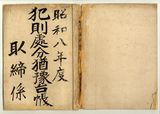 昭和八年度
犯則處分猶豫台帳
取締係